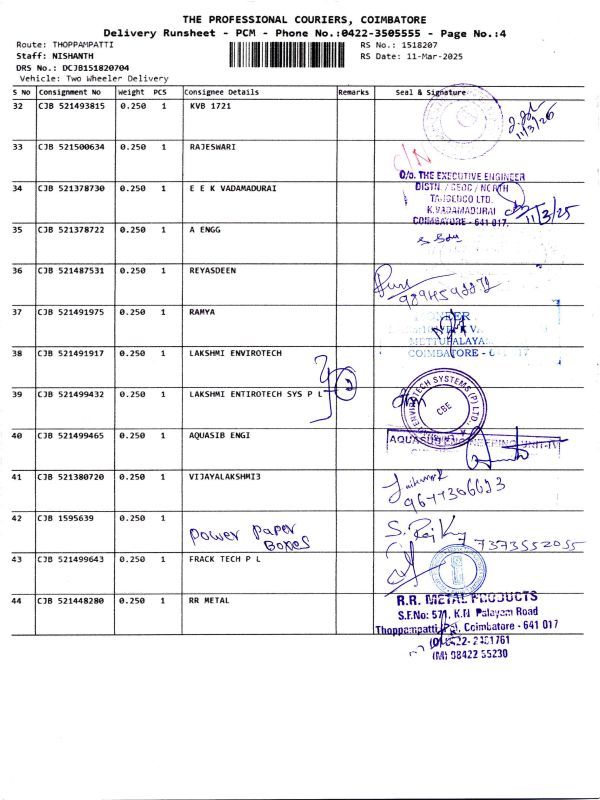 THE PROFESSIONAL COURIERS, COIMBATORE
Delivery Runsheet - PCM - Phone No.:0422-3505555 - Page No.:4
Route: THOPPAMPATTI RS No.: 1518207
Staff: NISHANTH RS Date: 11-Mar-2025
DRS No.: DCJB151820704
Vehicle: Two Wheeler Delivery
S No Consignment No Weight PCS Consignee Details Remarks Seal & Signature
32 CJB 521493815 0.250 1 KVB 1721
11/3/25
33 CJB 521500634 0.250 1 RAJESWARI
C/N
O/o. THE EXECUTIVE ENGINEER
34 CJB 521378730 0.250 1 E E K VADAMADURAI DISTN. / GEDC / NORTH
TANGEDCO LTD.
K.VADAMADURAI 11/3/25
COIMBATORE - 641 017.
35 CJB 521378722 0.250 1 A ENGG
36 CJB 521487531 0.250 1 REYASDEEN
37 CJB 521491975 0.250 1 RAMYA
METTUPALAYA
38 CJB 521491917 0.250 1 LAKSHMI ENVIROTECH COIMBATORE - 641 017
2
39 CJB 521499432 0.250 1 LAKSHMI ENTIROTECH SYS P L
ENVIROTECH SYSTEMS (P) LTD.,
CBE
40 CJB 521499465 0.250 1 AQUASIB ENGI
AQUASUB ENGINEERING UNIT-IV
41 CJB 521380720 0.250 1 VIJAYALAKSHMI3
42 CJB 1595639 0.250 1
Power Paper
Boxes
S. Raj
7373552055
43 CJB 521499643 0.250 1 FRACK TECH P L
44 CJB 521448280 0.250 1 RR METAL
R.R. METAL PRODUCTS
S.F.No: 571, K.N Palayam Road
Thoppampatti Coimbatore - 641 017
(O) 0422- 2461761
(M) 98422 55230